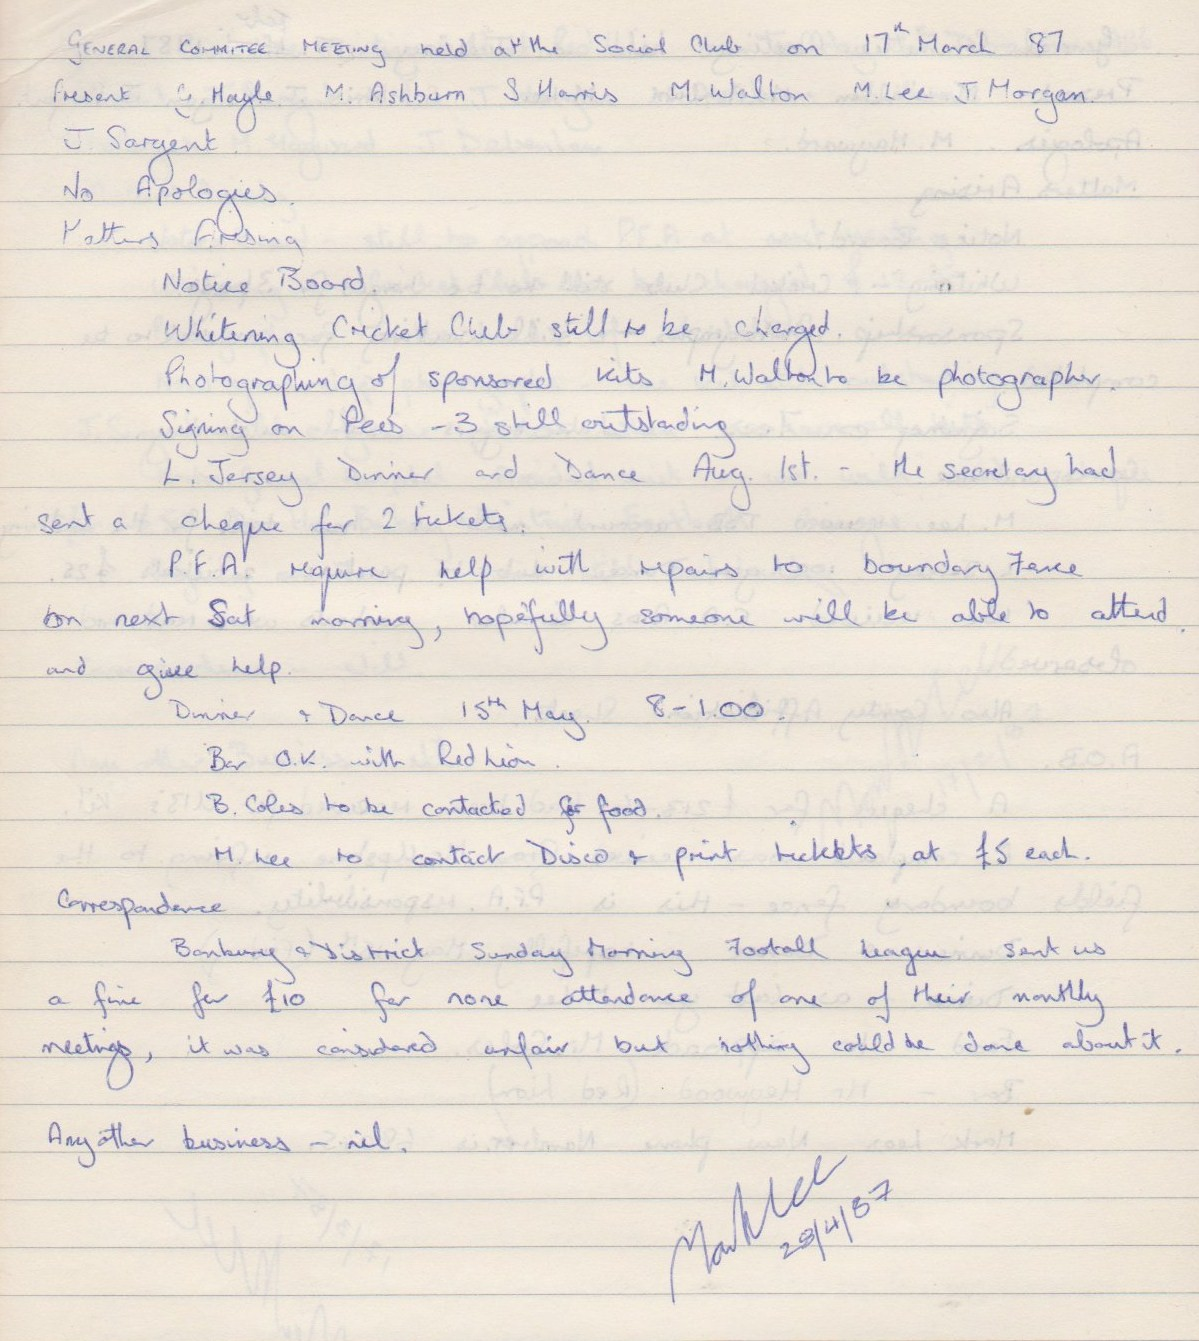 GENERAL COMMITEE MEETING held at the Social Club on 17th March 87
Present G Hayle M. Ashburn S Harris M. Walton M. Lee J. Morgan.
J. Sargent.
No Apologies.
Matters Arising
Notice Board.
Whitening Cricket Club still to be charged.
Photographing of sponsored kits M. Walton to be photographer.
Signing on Fees - 3 still outstading
L. Jersey Dinner and Dance Aug. 1st. - the secretary had
sent a cheque for 2 tickets.
P.F.A. require help with repairs to boundary Fence
on next Sat morning, hopefully someone will be able to attend.
and give help.
Dinner + Dance 15th May. 8-1.00.
Bar O.K. with Red Lion.
B. Coles to be contacted for food.
M. Lee to contact Disco + print tickets at £5 each.
Correspondence
Banbury + District Sunday Morning Footall League sent us
a fine for £10 for none attendance of one of their monthly
meetings, it was considered unfair but nothing could be done about it.
Any other business - nil.
Mark Lee
28/4/87